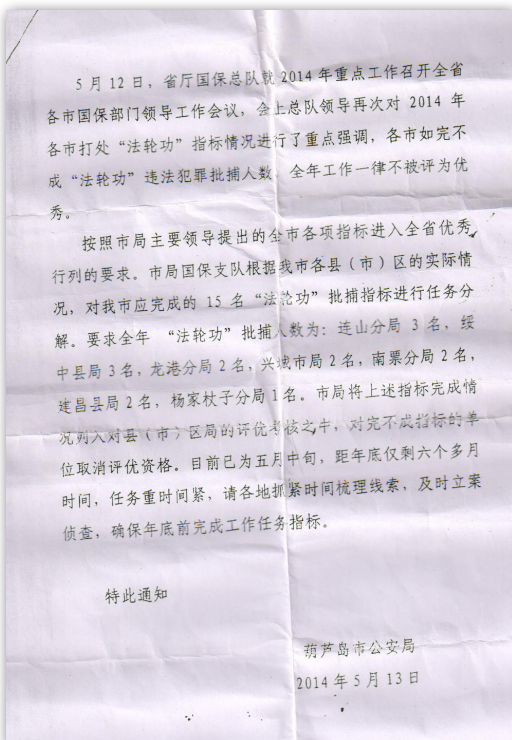 5月12日，省厅国保总队就2014年重点工作召开全省
各市国保部门领导工作会议，会上总队领导再次对 2014 年
各市打处“法轮功”指标情况进行了重点强调，各市如完不
成“法轮功”违法犯罪批捕人数，全年工作一律不被评为优
秀。
按照市局主要领导提出的全市各项指标进入全省优秀
行列的要求。市局国保支队根据我市各县（市）区的实际情
况，对我市应完成的 15 名“法轮功”批捕指标进行任务分
解。要求全年 “法轮功”批捕人数为：连山分局 3 名，绥
中县局 3 名，龙港分局 2 名，兴城市局 2 名，南票分局 2 名，
建昌县局 2 名，杨家杖子分局 1 名。市局将上述指标完成情
况列入对县（市）区局的评优考核之中，对完不成指标的单
位取消评优资格。目前已为五月中旬，距年底仅剩六个多月
时间，任务重时间紧，请各地抓紧时间梳理线索，及时立案
侦查，确保年底前完成工作任务指标。
特此通知
葫芦岛市公安局
2014 年 5 月 13 日